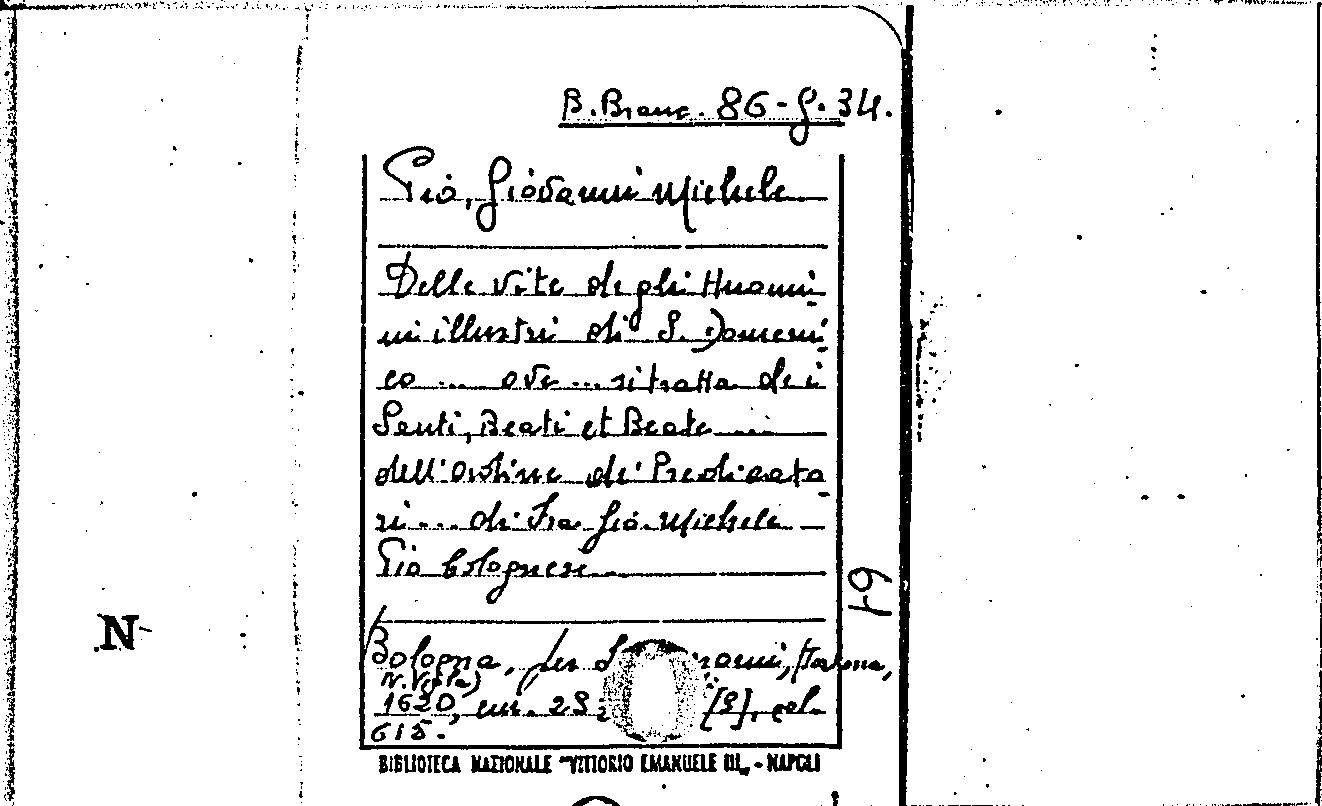 B. Branc. 86-g. 34.
Pio, Giovanni Michele
Delle vite degli Huomi
ni illustri di S. Domeni
co ... ove ... si tratta dei
Santi, Beati et Beate ....
dell'Ordine de' Predicato
ri ... di Fra Gio. Michele
Pio bolognese
Bologna, per
1620, cm. 29 [9], col.
615.
64
N
BIBLIOTECA NAZIONALE "VITTORIO EMANUELE III„ - NAPOLI